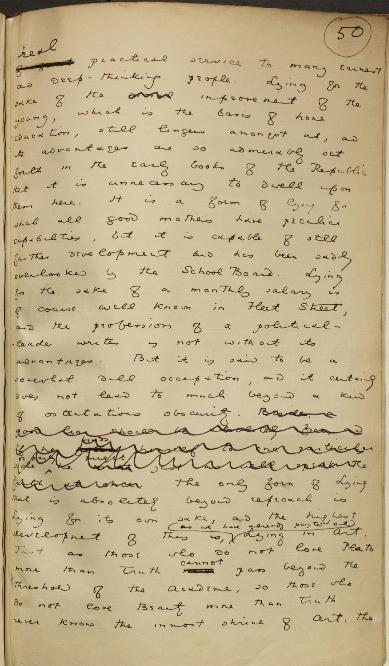 50
real
practical service to many earnest
and deep-thinking people. Lying for the
sake of the improvement of the
young, which is the basis of home
education, still lingers amongst us, and
its advantages are so admirably set
forth in the early books of the Republic
that it is unnecessary to dwell upon
them here. It is a form of lying for
which all good mothers have peculiar
capabilities, but it is capable of still
further development and has been sadly
overlooked by the School Board. Lying
for the sake of a monthly salary is
of course well known in Fleet Street,
and the profession of a political-
leader writer is not without its
advantages. But it is said to be a
somewhat dull occupation, and it certainly
does not lead to much beyond a kind
of ostentatious obscurity.
The only form of lying
that is absolutely beyond reproach is
lying for its own sake, and the highest
development of this is, as we have already pointed out, Lying in Art.
Just as those who do not love Plato
more than Truth cannot pass beyond the
threshold of the Academe, so those who
do not love Beauty more than Truth
never know the inmost shrine of Art. The